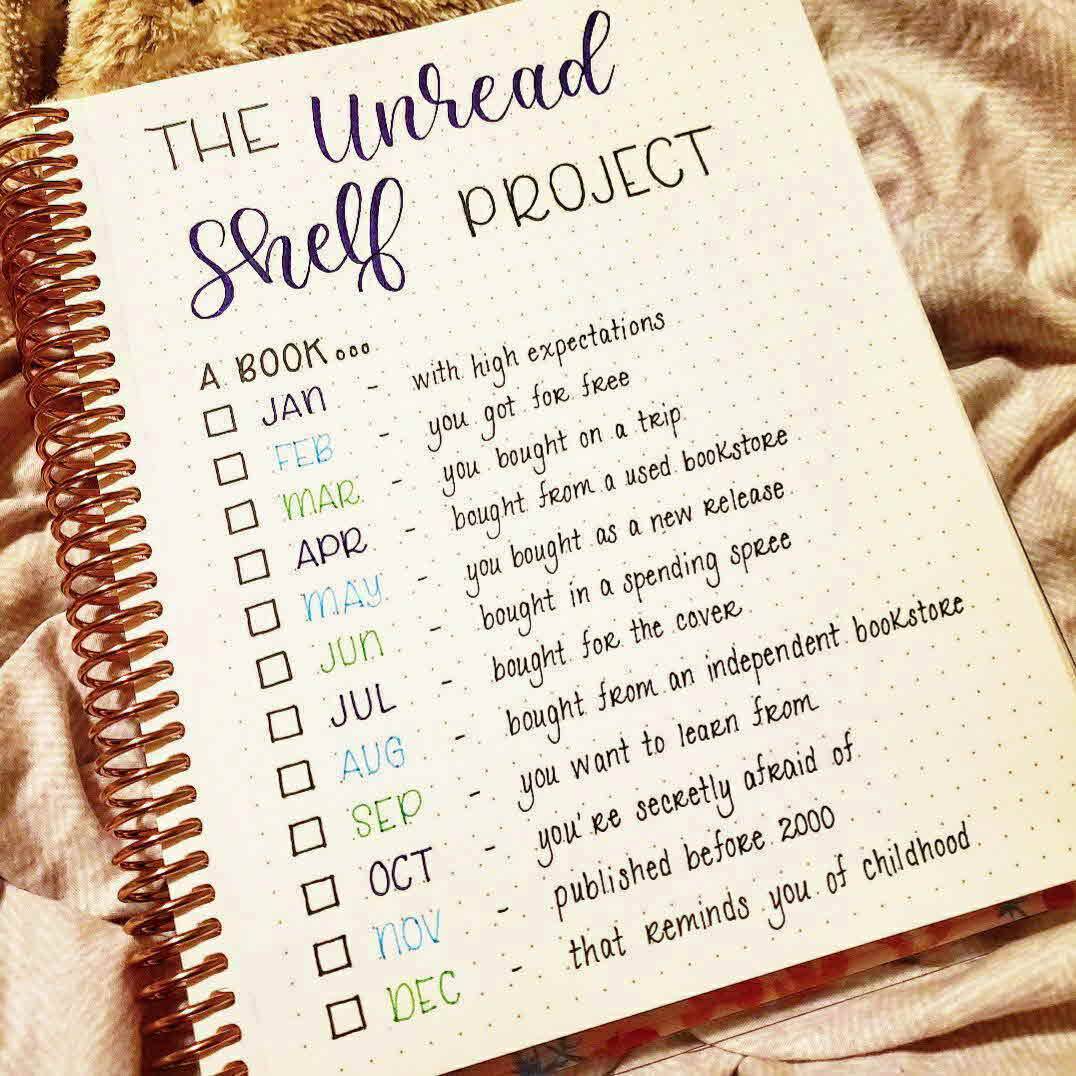 THE Unread
Shelf PROJECT
A BOOK...
JAN - with high expectations
FEB - you got for free
MAR - you bought on a trip
APR - bought from a used bookstore
MAY - you bought as a new release
JUN - bought in a spending spree
JUL - bought for the cover
AUG - bought from an independent bookstore
SEP - you want to learn from
OCT - you're secretly afraid of
NOV - published before 2000
DEC - that reminds you of childhood